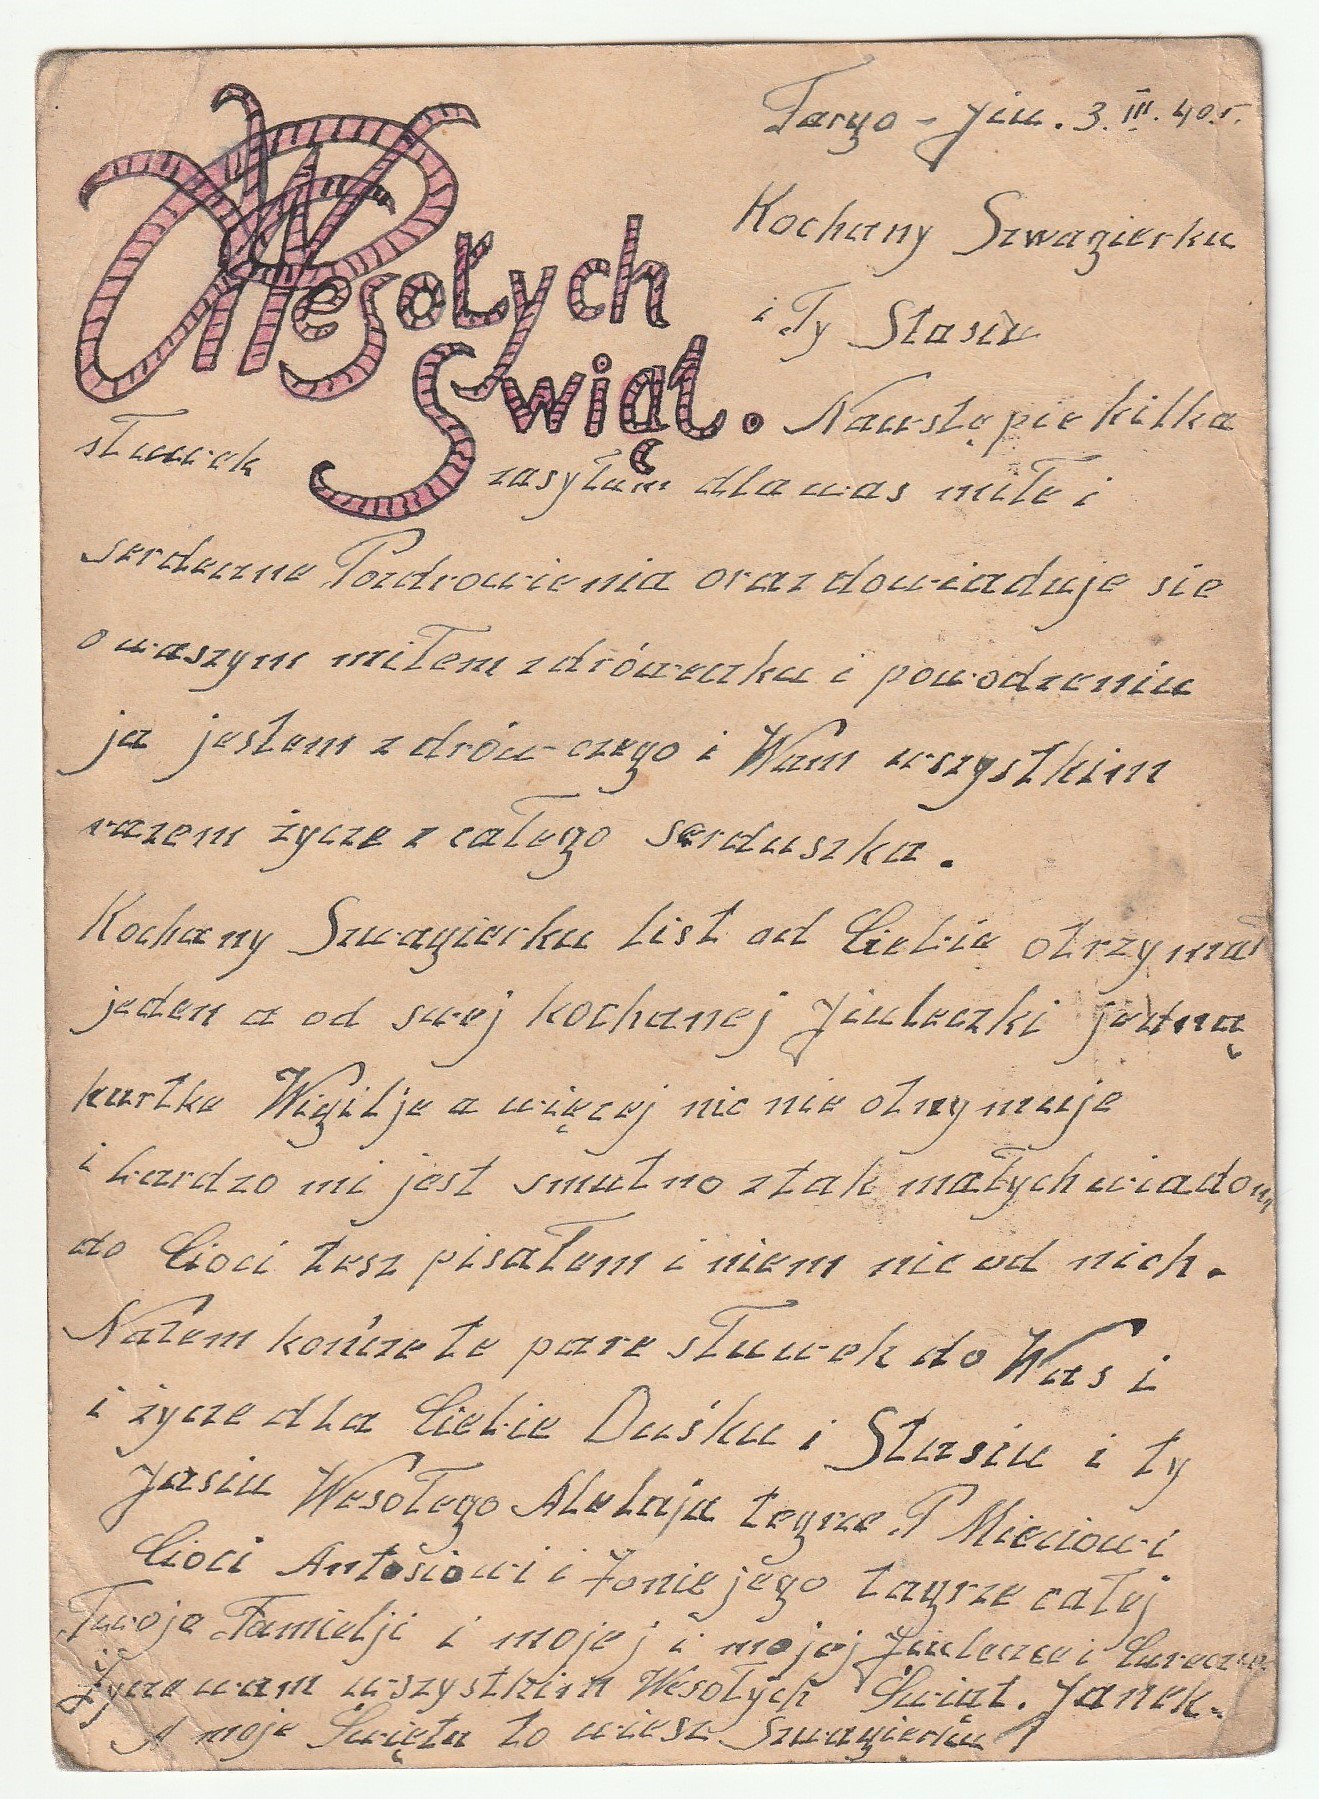 Wesołych Świąt.
Targo - Jiu. 3. III. 40.r.
Kochany Szwagierku
i Ty Stasiu
Nawstępie kilka
słuwek zasyłam dla was miłe i
serdeczne Pozdrowienia oraz dowiaduje sie
o waszym miłem zdróweczku i powodzeniu
ja jestem zdrów czego i Wam wszystkim
razem życze z całego serduszka.
Kochany Szwagierku list od Ciebie otrzymał
jeden a od swej kochanej Jiuleczki jedną
kartke Wigilje a więcej nic nie otrzymuje
i bardzo mi jest smutno z tak małych wiadom
do Cioci tesz pisałem i niem nic od nich.
Natem kończe te pare słuwek do Was i
i życze dla Ciebie Duśku i Stasiu i ty
Jasiu Wesołego Aleluja tegrze P Mieciowi
Cioci Antosiowi i Żonie jego tagrze całej
Twoje Famielji i mojej i mojej Jiuleczce i Cureczce
Życze wam wszystkim Wesołych Świąt. Janek.
A moje Święta to wiesz Szwagierku!